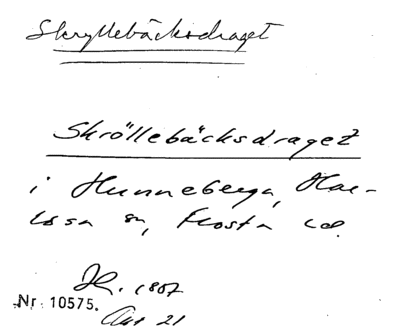 Skryllebäcksdraget
Skröllebäcksdraget
i Hunneberga, Har-
lösa sn, Frosta hd.
1807
Nr 10575.
21